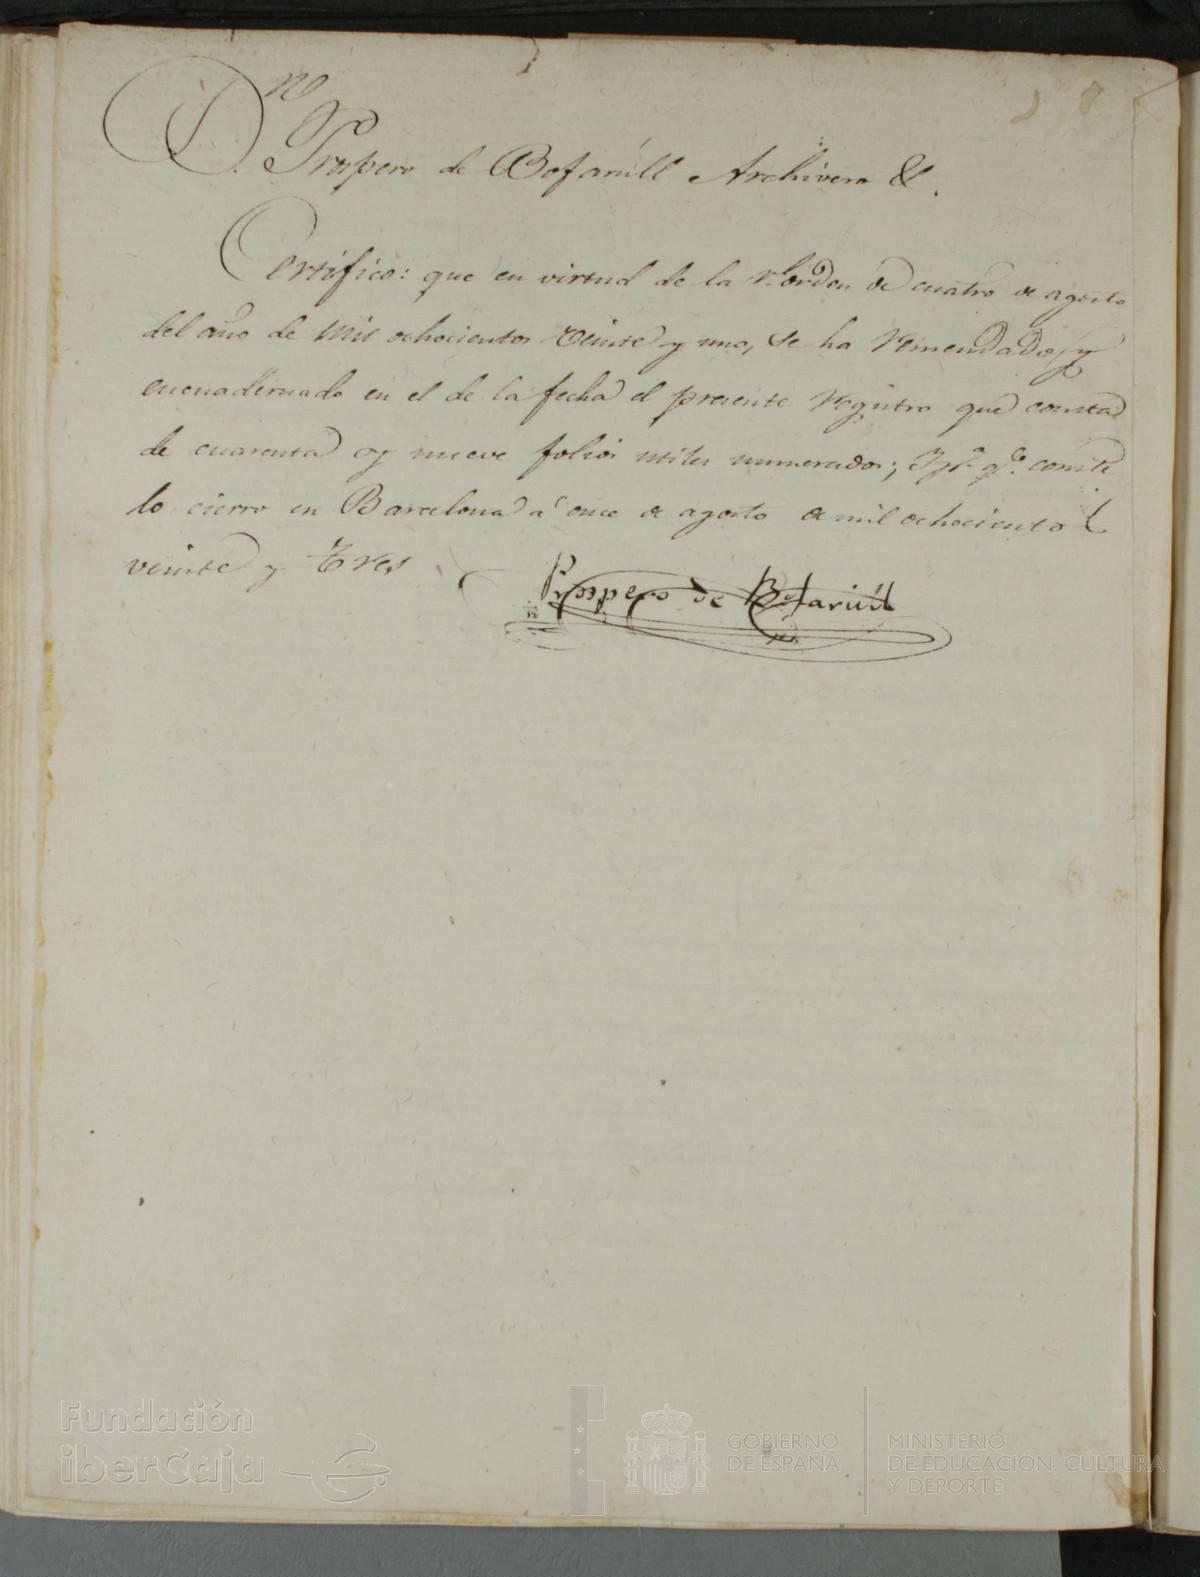 Dn. Prospero de Bofarull Archivero &.
Certifico: que en virtud de la rl. orden de cuatro de agosto
del año de mil ochocientos veinte y uno, se ha remendado, y
encuadernado en el de la fecha el presente registro que consta
de cuarenta y nueve folios utiles numerados; Y pa. qe. conste
lo cierro en Barcelona á once de agosto de mil ochocientos
veinte y tres
Prospero de Bofarull
Fundación
iberCaja
GOBIERNO
DE ESPAÑA
MINISTERIO
DE EDUCACIÓN, CULTURA
Y DEPORTE